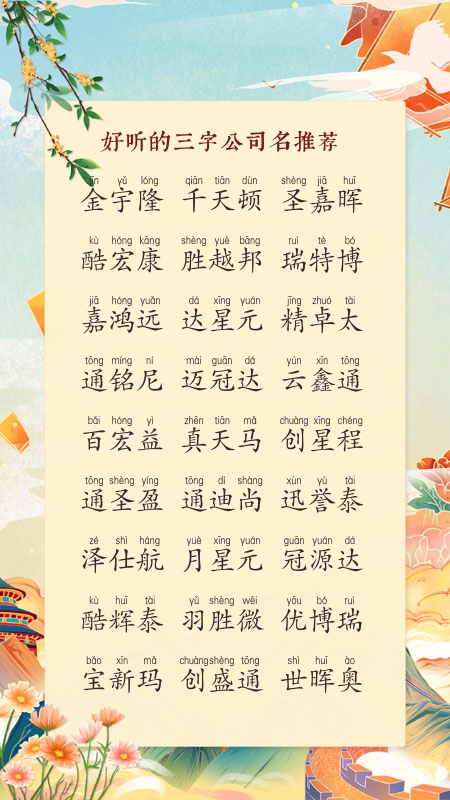 好听的三字公司名推荐
jīn yǔ lóng qiān tiān dùn shèng jiā huī
金宇隆 千天顿 圣嘉晖
kù hóng kāng shèng yuè bāng ruì tè bó
酷宏康 胜越邦 瑞特博
jiā hóng yuǎn dá xīng yuán jīng zhuó tài
嘉鸿远 达星元 精卓太
tōng míng ní mài guān dá yún xīn tōng
通铭尼 迈冠达 云鑫通
bǎi hóng yì zhēn tiān mǎ chuàng xīng chéng
百宏益 真天马 创星程
tōng shèng yíng tōng dí shàng xùn yù tài
通圣盈 通迪尚 迅誉泰
zé shì háng yuè xīng yuán guān yuán dá
泽仕航 月星元 冠源达
kù huī tài yǔ shèng wēi yōu bó ruì
酷辉泰 羽胜微 优博瑞
bǎo xīn mǎ chuàng shèng tōng shì huī ào
宝新玛 创盛通 世晖奥